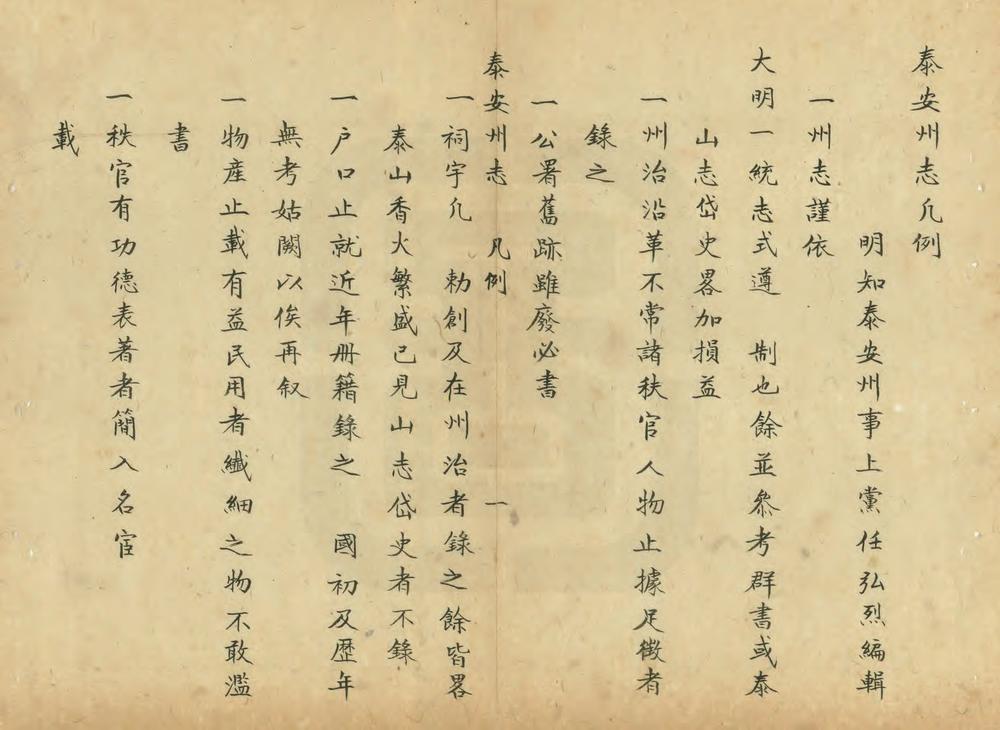 泰安州志凡例
明知泰安州事上黨任弘烈編輯
一州志謹依
大明一統志式遵　制也餘並叅考群書或泰
山志岱史畧加損益
一州治沿革不常諸秩官人物止據足徴者
錄之
一公署舊跡雖廢必書
泰安州志　凡例　一
一祠宇凡　勅創及在州治者錄之餘皆畧
泰山香火繁盛已見山志岱史者不錄
一戶口止就近年冊籍錄之　國初及歷年
無考姑闕以俟再叙
一物産止載有益民用者纎細之物不敢濫
書
一秩官有功德表著者簡入名宦
載